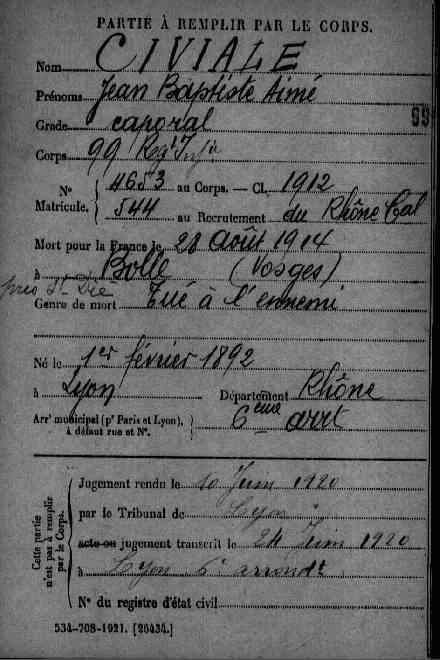 PARTIE À REMPLIR PAR LE CORPS.
Nom CIVIALE
Prénoms Jean Baptiste Aimé
Grade caporal
99
Corps 99 Reg^t Inf^ie
N° Matricule. { 4653 au Corps. — Cl. 1912
544 au Recrutement du Rhône Cal
Mort pour la France le 28 Août 1914
à Bolle (Vosges)
près St Dié
Genre de mort Tué à l'ennemi
Né le 1er février 1892
à Lyon Département Rhône
Arr^t municipal (p^r Paris et Lyon), à défaut rue et N°. } 6ème arrt
Cette partie n'est pas à remplir par le Corps.
Jugement rendu le 10 Juin 1920
par le Tribunal de Lyon
acte ou jugement transcrit le 24 Juin 1920
à Lyon 6e arrondt
N° du registre d'état civil
534-708-1921. [26434.]